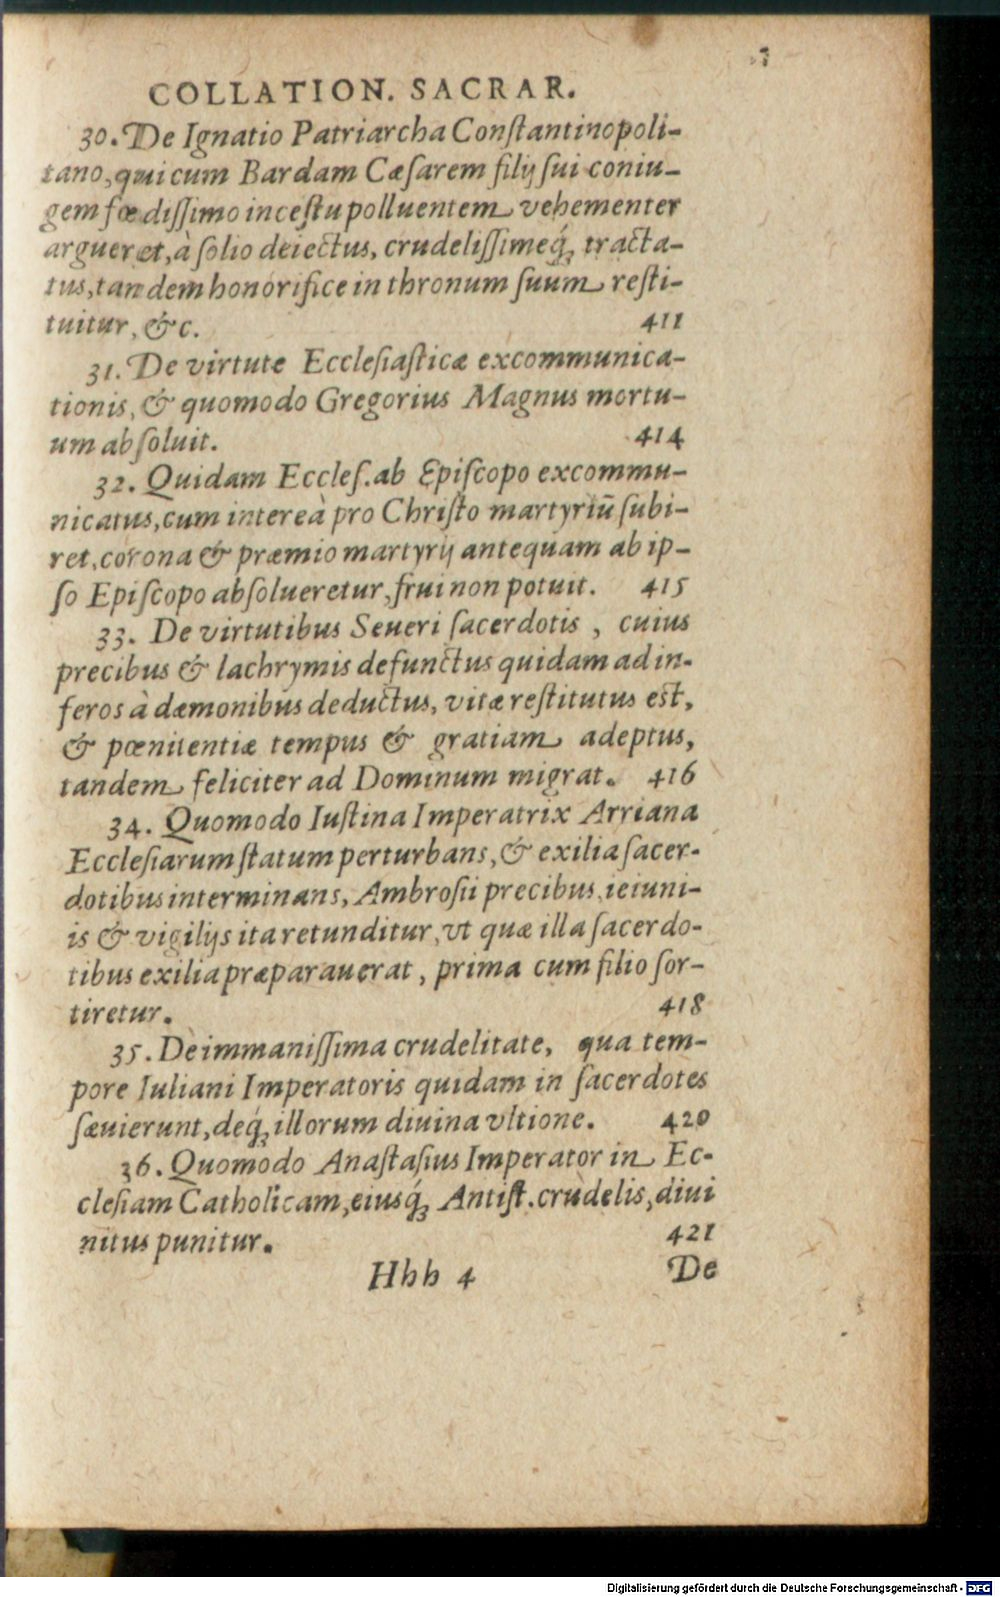 COLLATION. SACRAR.
30. De Ignatio Patriarcha Conſtantinopoli-
tano, qui cum Bardam Cæſarem filij ſui coniu-
gem fœdiſſimo inceſtu polluentem vehementer
argueret, à ſolio deiectus, crudeliſſimeq́; tracta-
tus, tandem honorifice in thronum ſuum reſti-
tuitur, &c. 411
31. De virtute Eccleſiaſticæ excommunica-
tionis, & quomodo Gregorius Magnus mortu-
um abſoluit. 414
32. Quidam Eccleſ. ab Epiſcopo excommu-
nicatus, cum intereà pro Chriſto martyriũ ſubi-
ret, corona & præmio martyrij antequam ab ip-
ſo Epiſcopo abſolueretur, frui non potuit. 415
33. De virtutibus Seueri ſacerdotis, cuius
precibus & lachrymis defunctus quidam ad in-
feros à dæmonibus deductus, vitæ reſtitutus est,
& pœnitentiæ tempus & gratiam adeptus,
tandem feliciter ad Dominum migrat. 416
34. Quomodo Iuſtina Imperatrix Arriana
Eccleſiarum ſtatum perturbans, & exilia ſacer-
dotibus interminans, Ambroſii precibus, ieiuni-
is & vigilijs ita retunditur, vt quæ illa ſacerdo-
tibus exilia præparauerat, prima cum filio ſor-
tiretur. 418
35. De immaniſſima crudelitate, qua tem-
pore Iuliani Imperatoris quidam in ſacerdotes
ſæuierunt, deq́; illorum diuina vltione. 420
36. Quomodo Anaſtaſius Imperator in Ec-
cleſiam Catholicam, eiusq́; Antiſt. crudelis, diui
nitus punitur. 421
Hhh 4 De
Digitalisierung gefördert durch die Deutsche Forschungsgemeinschaft - DFG